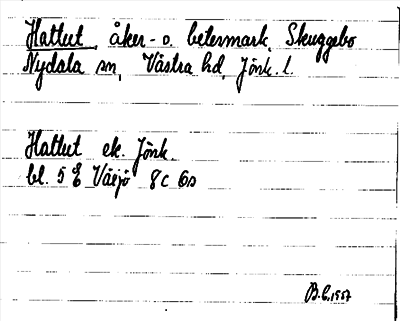 Hattut, åker- o. betesmark, Skuggebo
Nydala sn, Västra hd, Jönk. l.
Hattut ek. Jönk.
bl. 5 E Växjö 8c 60
B.E. 1957